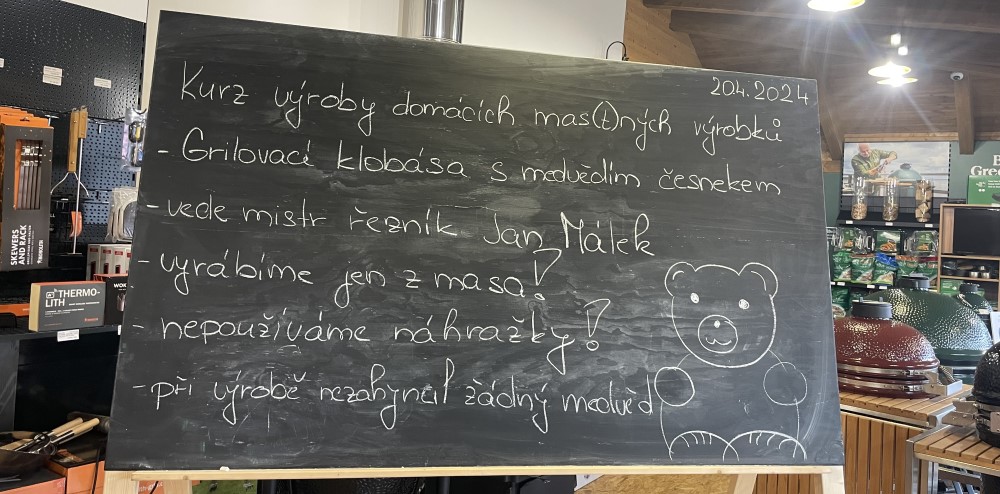 20.4.2024
Kurz výroby domácích mas(t)ných výrobků
- Grilovací klobása s medvědím česnekem
- vede mistr řezník Jan Málek
- vyrábíme jen z masa!
- nepoužíváme náhražky!
- při výrobě nezahynul žádný medvěd
SKEWERS
AND RACK
THERMO-
LITH
WOK